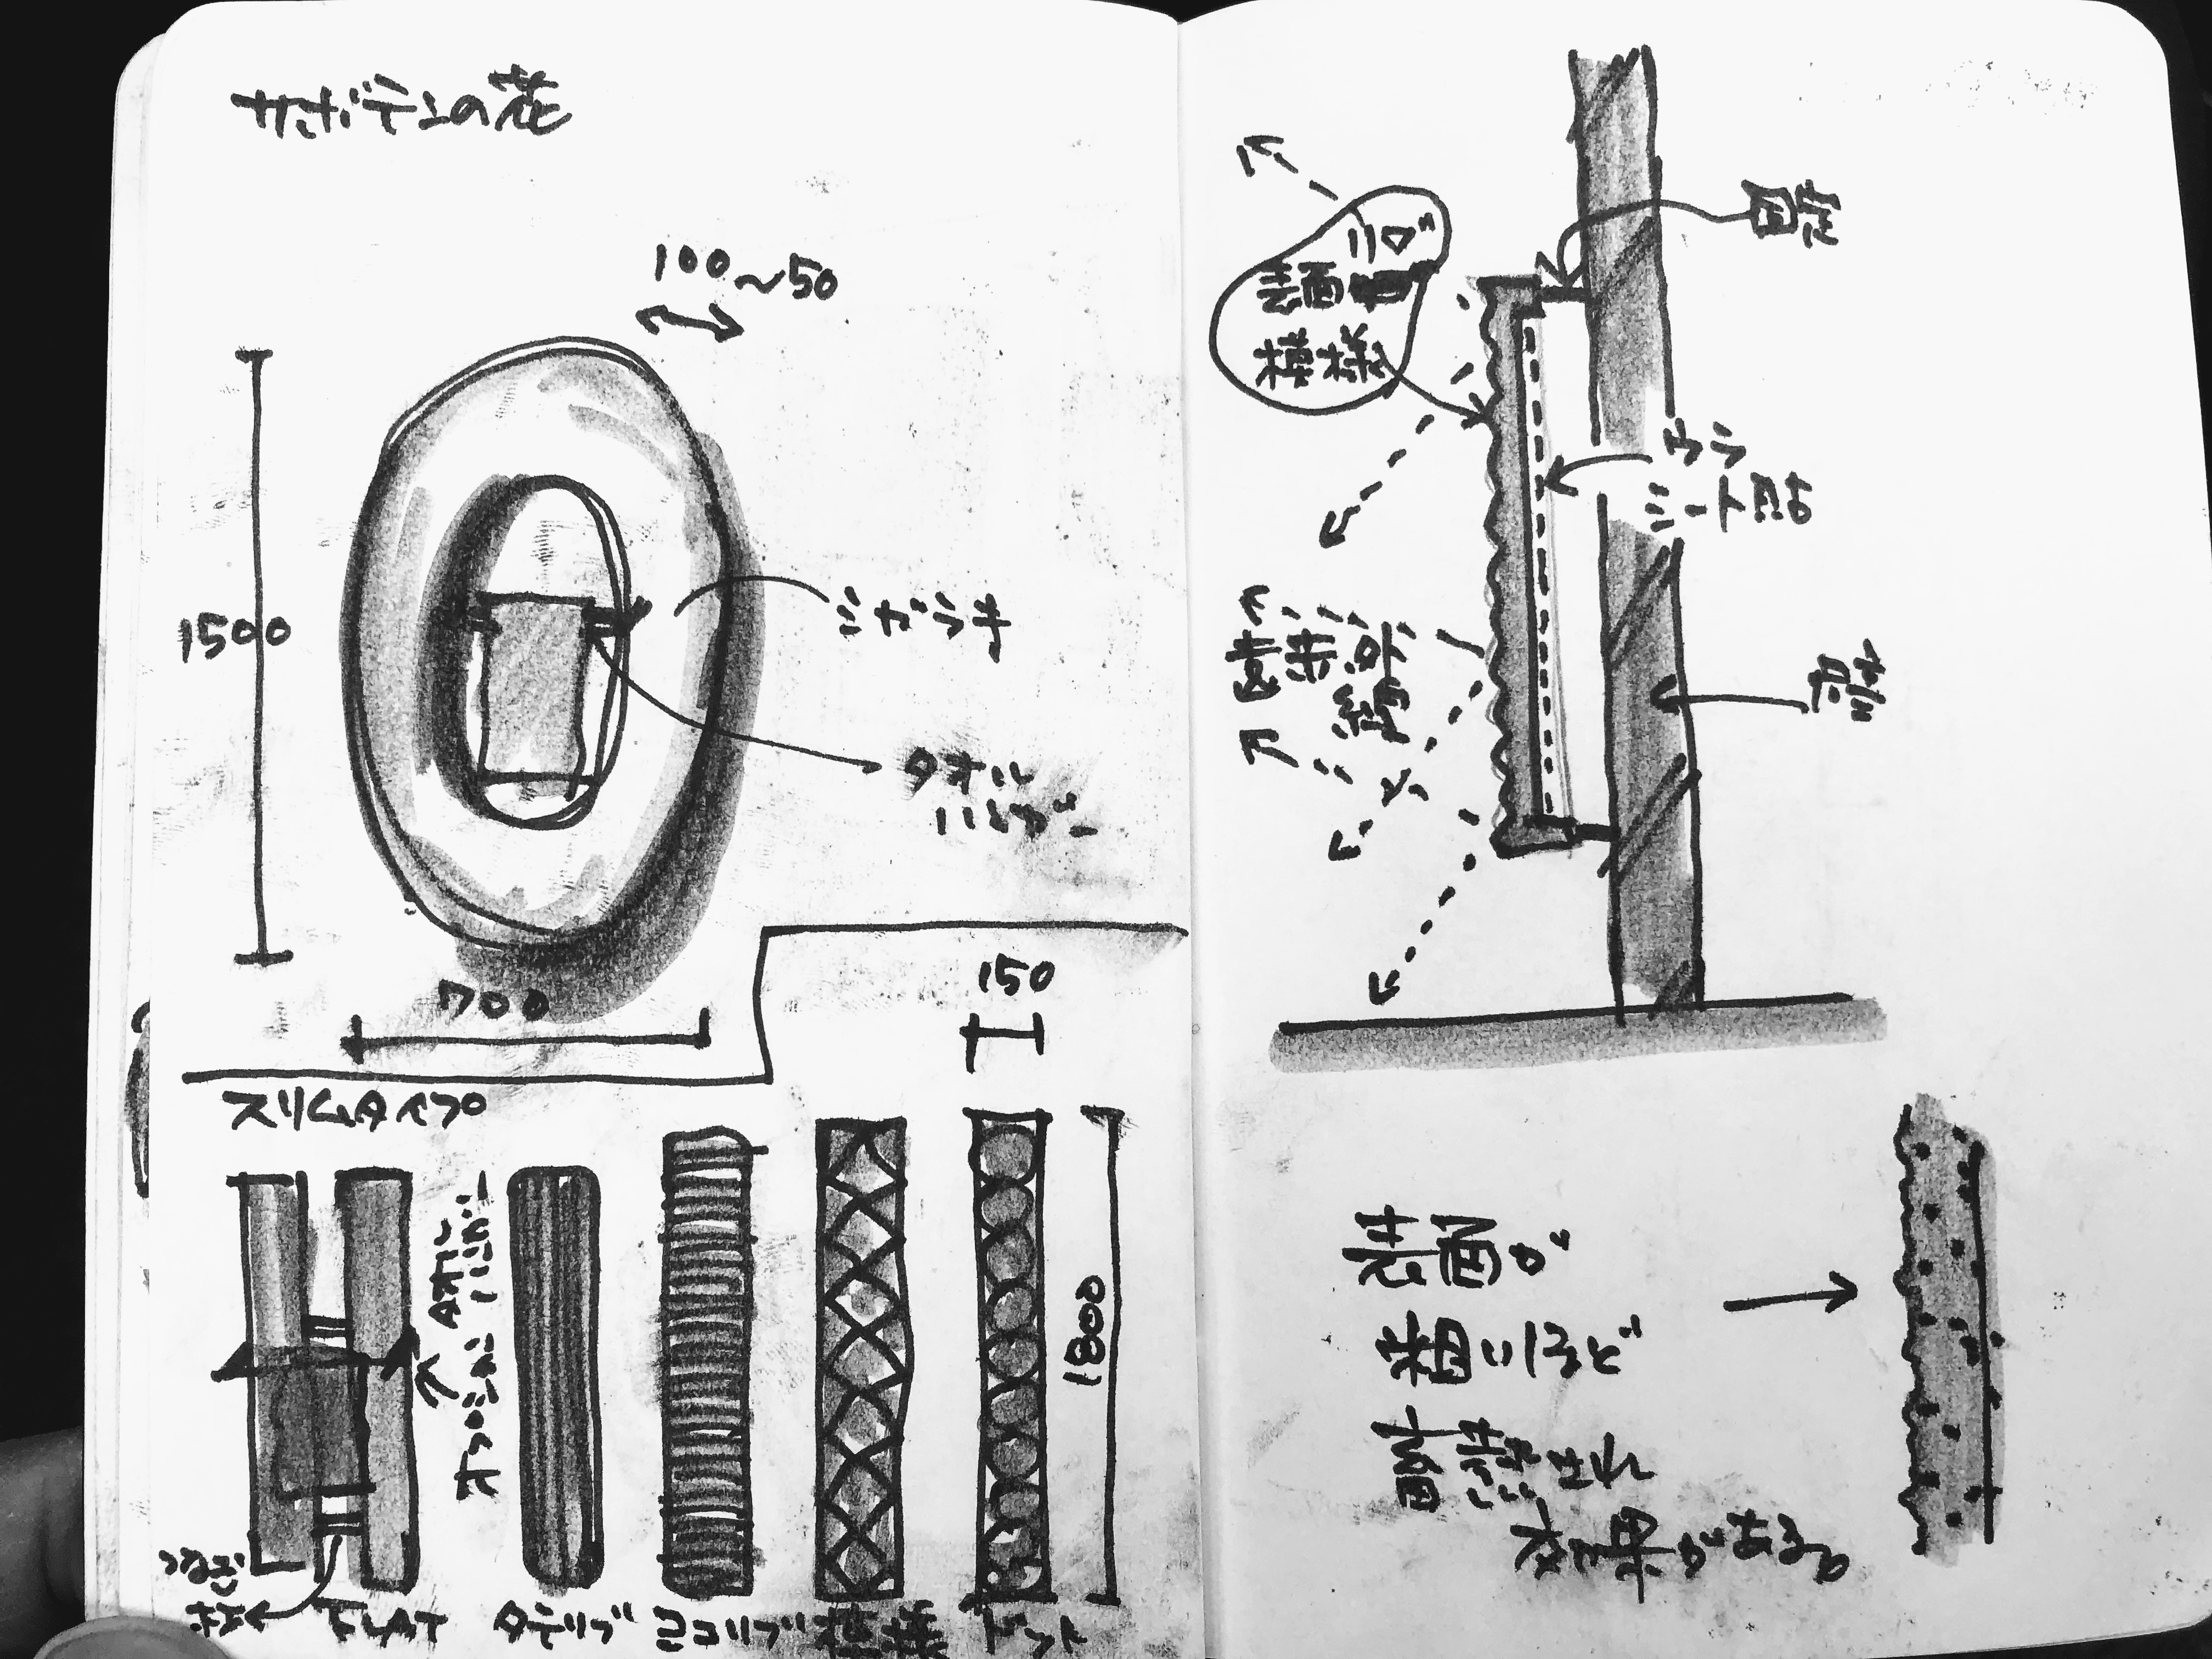 サボテンの花
100〜50
1500
ミガラキ
タオル
ハンガー
700
スリムタイプ
150
1800
タオル
ハンガー
オプション
つなぎ
材
FLAT
タテリブ
ヨコリブ
模様
ドット
固定
リブ
表面
模様
ウラ
シート貼
遠赤外線
壁
表面が
粗いほど
耐熱され
効果がある。